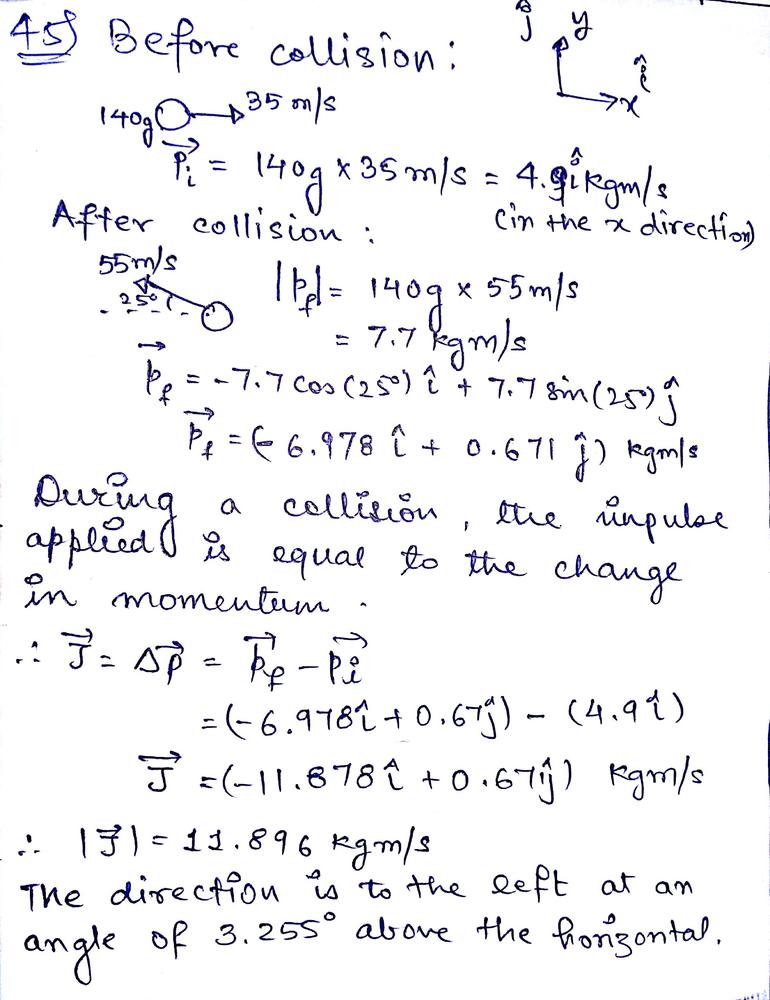 45) Before collision :
ĵ y
î
x
140g 35 m/s
p⃗i = 140g × 35 m/s = 4.9î kgm/s
(in the x direction)
After collision :
55m/s
25°
|pf| = 140g × 55 m/s
= 7.7 kgm/s
p⃗f = -7.7 cos(25°) î + 7.7 sin(25°) ĵ
p⃗f = (-6.978 î + 0.671 ĵ) kgm/s
During a collision, the impulse
applied is equal to the change
in momentum.
∴ J⃗ = Δp⃗ = p⃗f - p⃗i
= (-6.978î + 0.67ĵ) - (4.9î)
J⃗ = (-11.878î + 0.67ĵ) kgm/s
∴ |J⃗| = 11.896 kgm/s
The direction is to the left at an
angle of 3.255° above the horizontal.